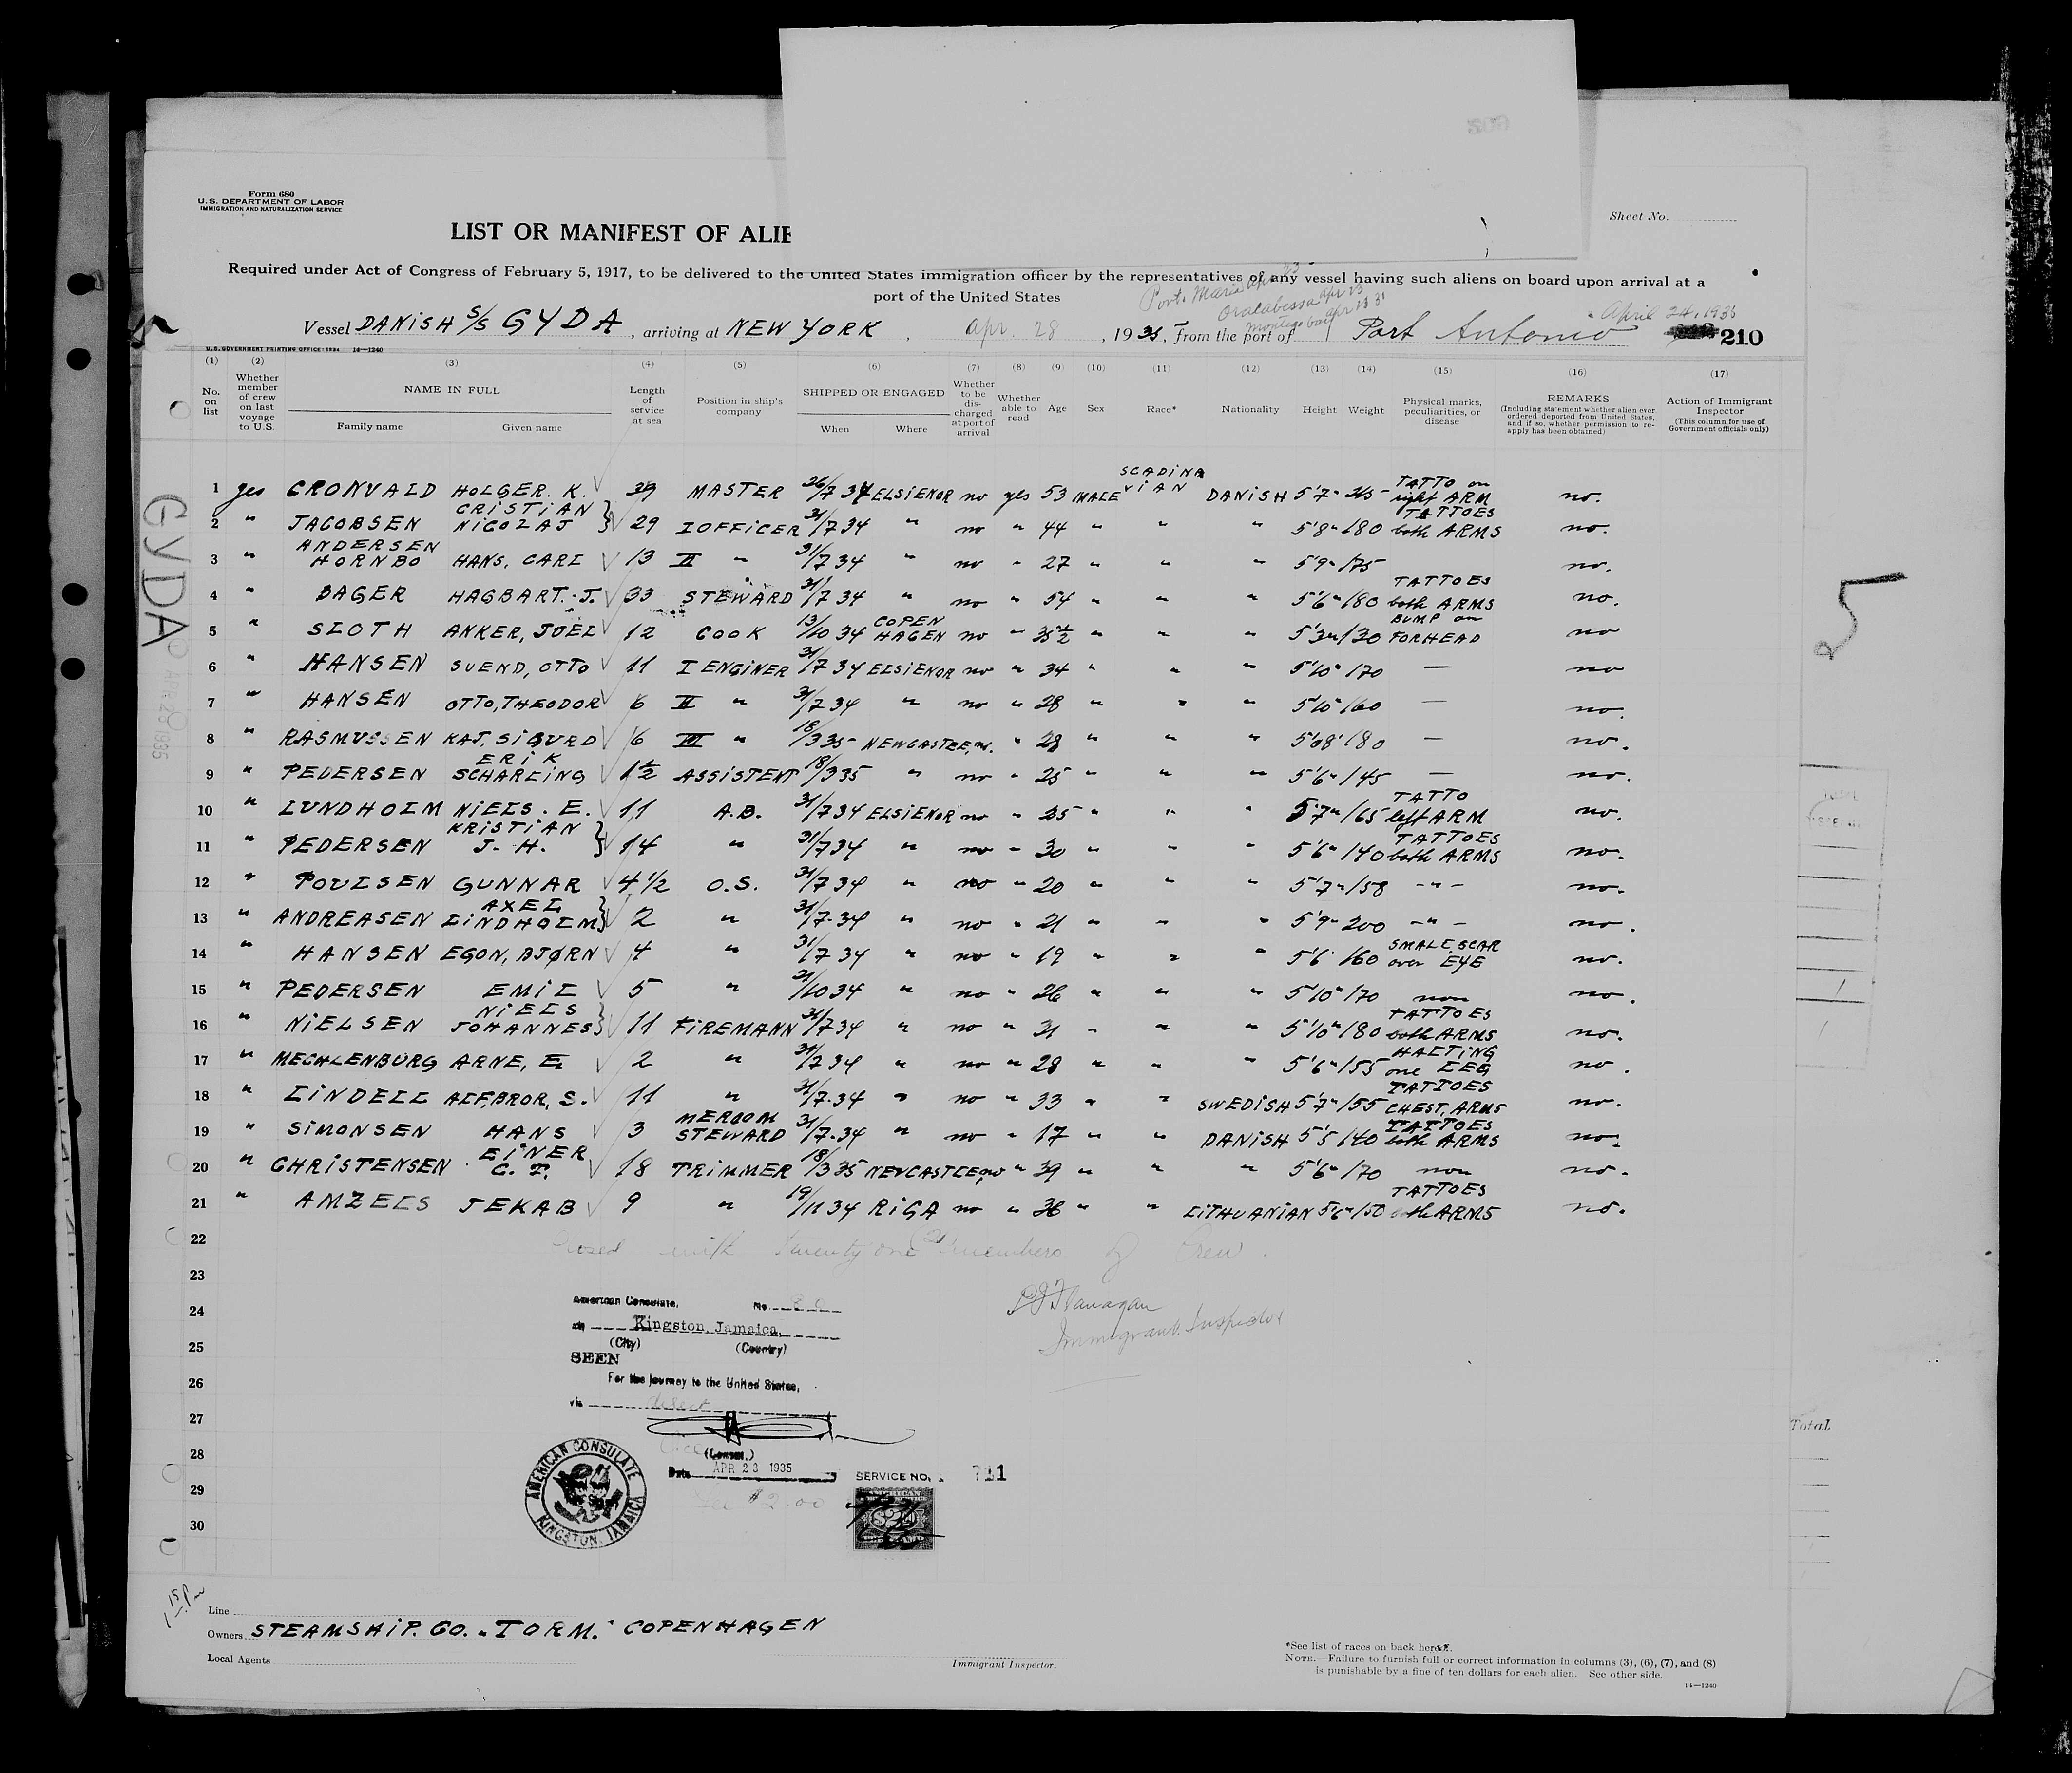 Form 680
U.S. DEPARTMENT OF LABOR
IMMIGRATION AND NATURALIZATION SERVICE
Sheet No.
LIST OR MANIFEST OF ALIE
Required under Act of Congress of February 5, 1917, to be delivered to the United States immigration officer by the representatives of any vessel having such aliens on board upon arrival at a
port of the United States
Port Maria Apr 23
Oracabessa Apr 23
Montego bay Apr 23
April 24, 1935
Vessel DANISH S/S GYDA, arriving at NEW YORK, Apr. 28, 1935, from the port of Port Antonio 210
U.S. GOVERNMENT PRINTING OFFICE: 1934 14—1240
(1) (2) (3) (4) (5) (6) (7) (8) (9) (10) (11) (12) (13) (14) (15) (16) (17)
No. on list
Whether member of crew on last voyage to U.S.
NAME IN FULL
Family name Given name
Length of service at sea
Position in ship's company
SHIPPED OR ENGAGED
When Where
Whether to be discharged at port of arrival
Whether able to read
Age
Sex
Race*
Nationality
Height
Weight
Physical marks, peculiarities, or disease
REMARKS
(Including statement whether alien ever ordered deported from United States, and if so, whether permission to reapply has been obtained)
Action of Immigrant Inspector
(This column for use of Government officials only)
1 yes CRONVALD HOLGER. K. 39 MASTER 26/7 34 ELSIENOR no yes 53 MALE SCADINAVIAN DANISH 5'7" 215 TATTO on right ARM no.
2 " JACOBSEN CRISTIAN NICOLAJ 29 I OFFICER 31/7 34 " no " 44 " " " 5'8" 180 TATTOES both ARMS no.
3 " ANDERSEN HORNBO HANS, CARL 13 II " 31/7 34 " no " 27 " " " 5'9" 175 no.
4 " BAGER HAGBART. J. 33 STEWARD 31/7 34 " no " 54 " " " 5'6" 180 TATTOES both ARMS no.
5 " SLOTH ANKER, JOEL 12 COOK 13/10 34 COPENHAGEN no " 35½ " " " 5'3" 130 BUMP on FORHEAD no
6 " HANSEN SVEND, OTTO 11 I ENGINER 31/7 34 ELSIENOR no " 34 " " " 5'10" 170 — no
7 " HANSEN OTTO, THEODOR 6 II " 31/7 34 " no " 28 " " " 5'10" 160 — no.
8 " RASMUSSEN KAJ, SIGURD 6 III " 18/3 35 NEWCASTLE, no. " 28 " " " 5'08" 180 — no.
9 " PEDERSEN ERIK SCHARLING 1½ ASSISTENT 18/3 35 " no " 25 " " " 5'6" 145 — no.
10 " LUNDHOLM NIELS. E. 11 A.B. 31/7 34 ELSIENOR no " 25 " " " 5'7" 165 TATTO left ARM no.
11 " PEDERSEN KRISTIAN J. H. 14 " 31/7 34 " no " 30 " " " 5'6" 140 TATTOES both ARMS no.
12 " POULSEN GUNNAR 4½ O.S. 31/7 34 " no " 20 " " " 5'7" 158 -"- no.
13 " ANDREASEN AXEL LINDHOLM 2 " 31/7-34 " no " 21 " " " 5'9" 200 -"- no.
14 " HANSEN EGON, BJØRN 4 " 31/7 34 " no " 19 " " " 5'6" 160 SMALL SCAR over EYE no.
15 " PEDERSEN EMIL 5 " 31/10 34 " no " 26 " " " 5'10" 170 non no.
16 " NIELSEN NIELS JOHANNES 11 FIREMANN 31/7-34 " no " 31 " " " 5'10" 180 TATTOES both ARMS no.
17 " MECHLENBURG ARNE, E. 2 " 31/7 34 " no " 28 " " " 5'6" 155 HALTING one LEG no.
18 " LINDELL ALF, BROR, S. 11 " 31/7-34 " no " 33 " " SWEDISH 5'7" 155 TATTOES CHEST, ARMS no.
19 " SIMONSEN HANS 3 MEROOM STEWARD 31/7-34 " no " 17 " " DANISH 5'5 140 TATTOES both ARMS no.
20 " CHRISTENSEN EINER C. T. 18 TRIMMER 18/3 35 NEVCASTLE, no " 39 " " " 5'6" 170 non no.
21 " AMZELS JEKAB 9 " 19/11 34 RIGA no " 36 " " LITHUANIAN 5'6" 150 TATTOES both ARMS no.
22 Closed with Twenty one (21) members of Crew.
23
24
25
26
27
28
29
30
P J Flanagan
Immigrant Inspector
American Consulate, No.
at Kingston, Jamaica,
(City) (Country)
SEEN
For the journey to the United States,
via direct
Vice (Consul.)
Date APR 23 1935
Fee $2.00
SERVICE NO. 711
AMERICAN CONSULATE
KINGSTON, JAMAICA
GYDA
APR 28 1935
5
Total
Line
Owners STEAMSHIP. CO. "TORM." COPENHAGEN
Local Agents
Immigrant Inspector.
*See list of races on back hereof.
NOTE.—Failure to furnish full or correct information in columns (3), (6), (7), and (8)
is punishable by a fine of ten dollars for each alien. See other side.
14—1240